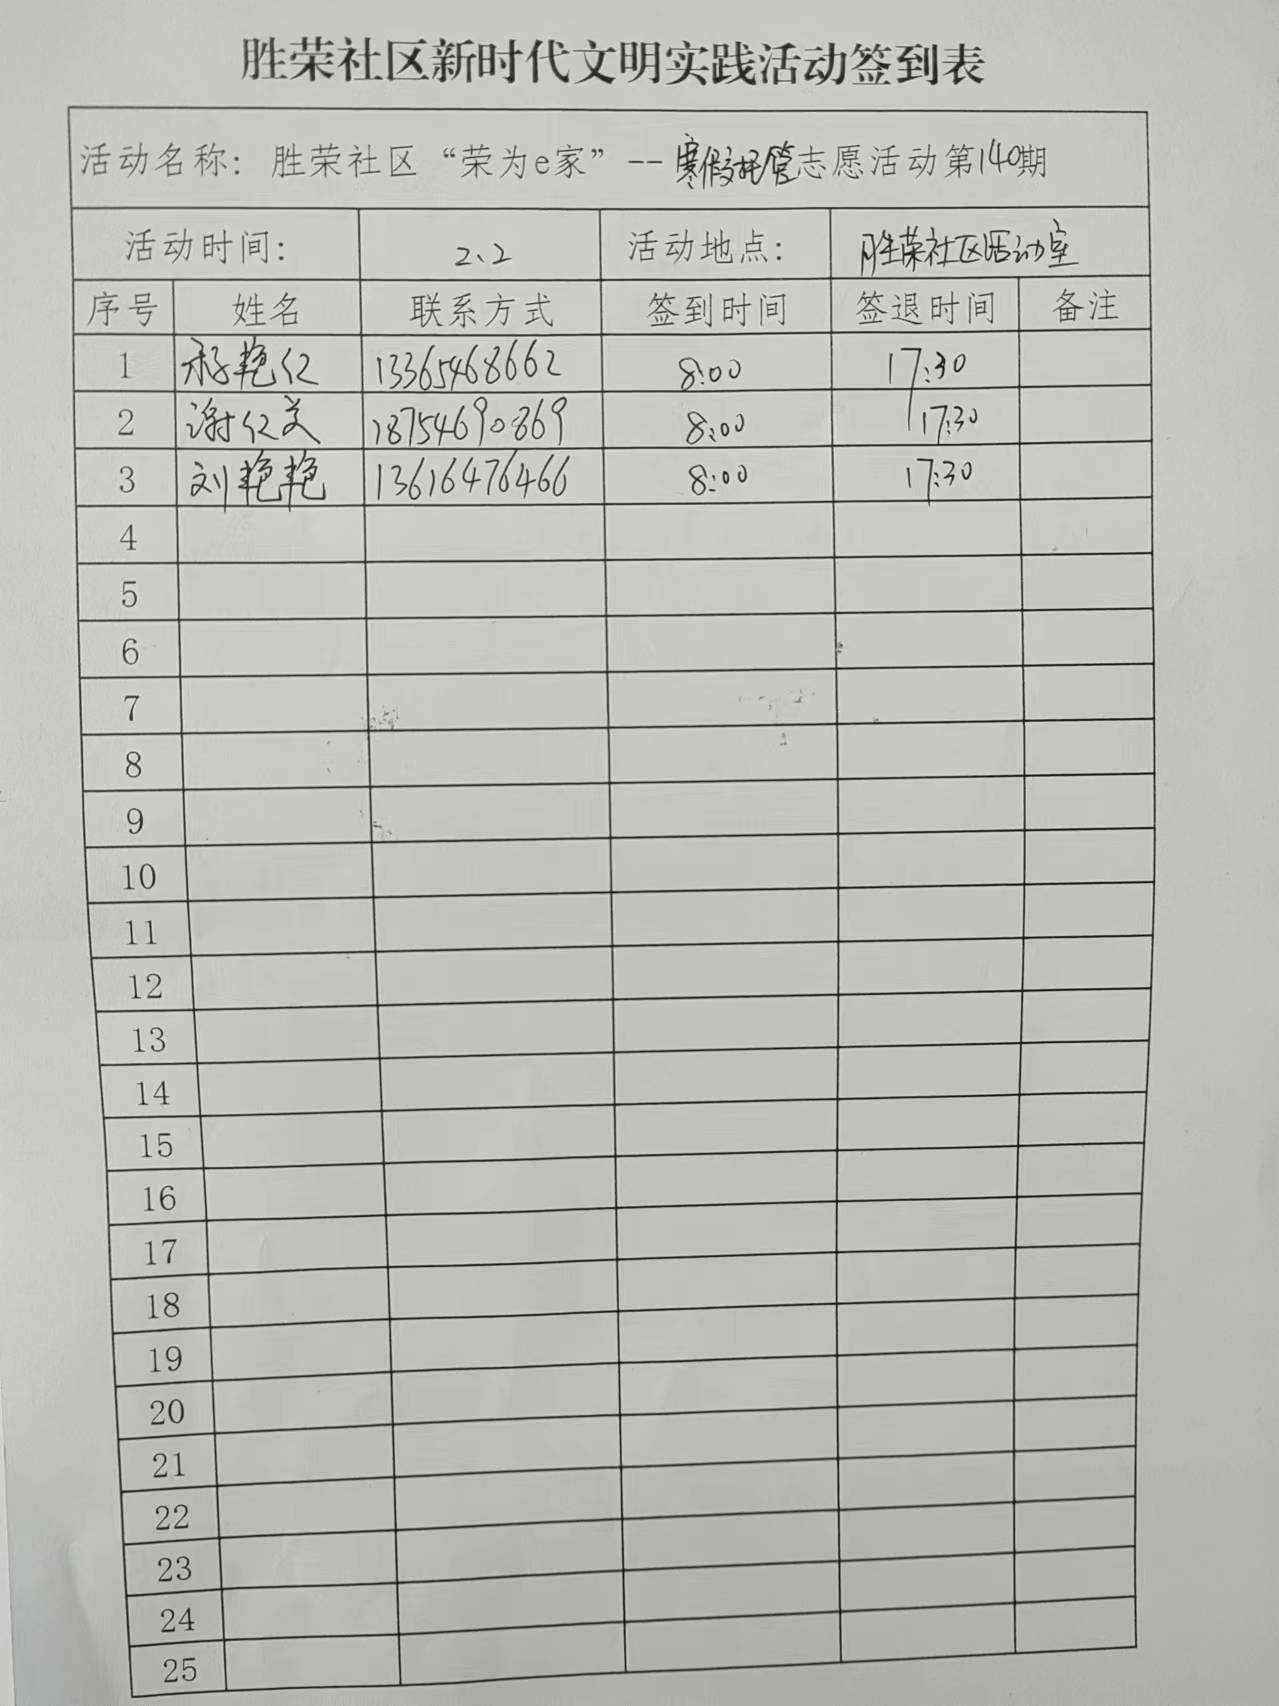 胜荣社区新时代文明实践活动签到表
活动名称：胜荣社区“荣为e家”--寒假托管志愿活动第140期
活动时间： 2、2 活动地点： 胜荣社区活动室
序号 姓名 联系方式 签到时间 签退时间 备注
1 艳红 13365468662 8:00 17:30
2 谢红美 18754690869 8:00 17:30
3 刘艳艳 13616476466 8:00 17:30
4
5
6
7
8
9
10
11
12
13
14
15
16
17
18
19
20
21
22
23
24
25